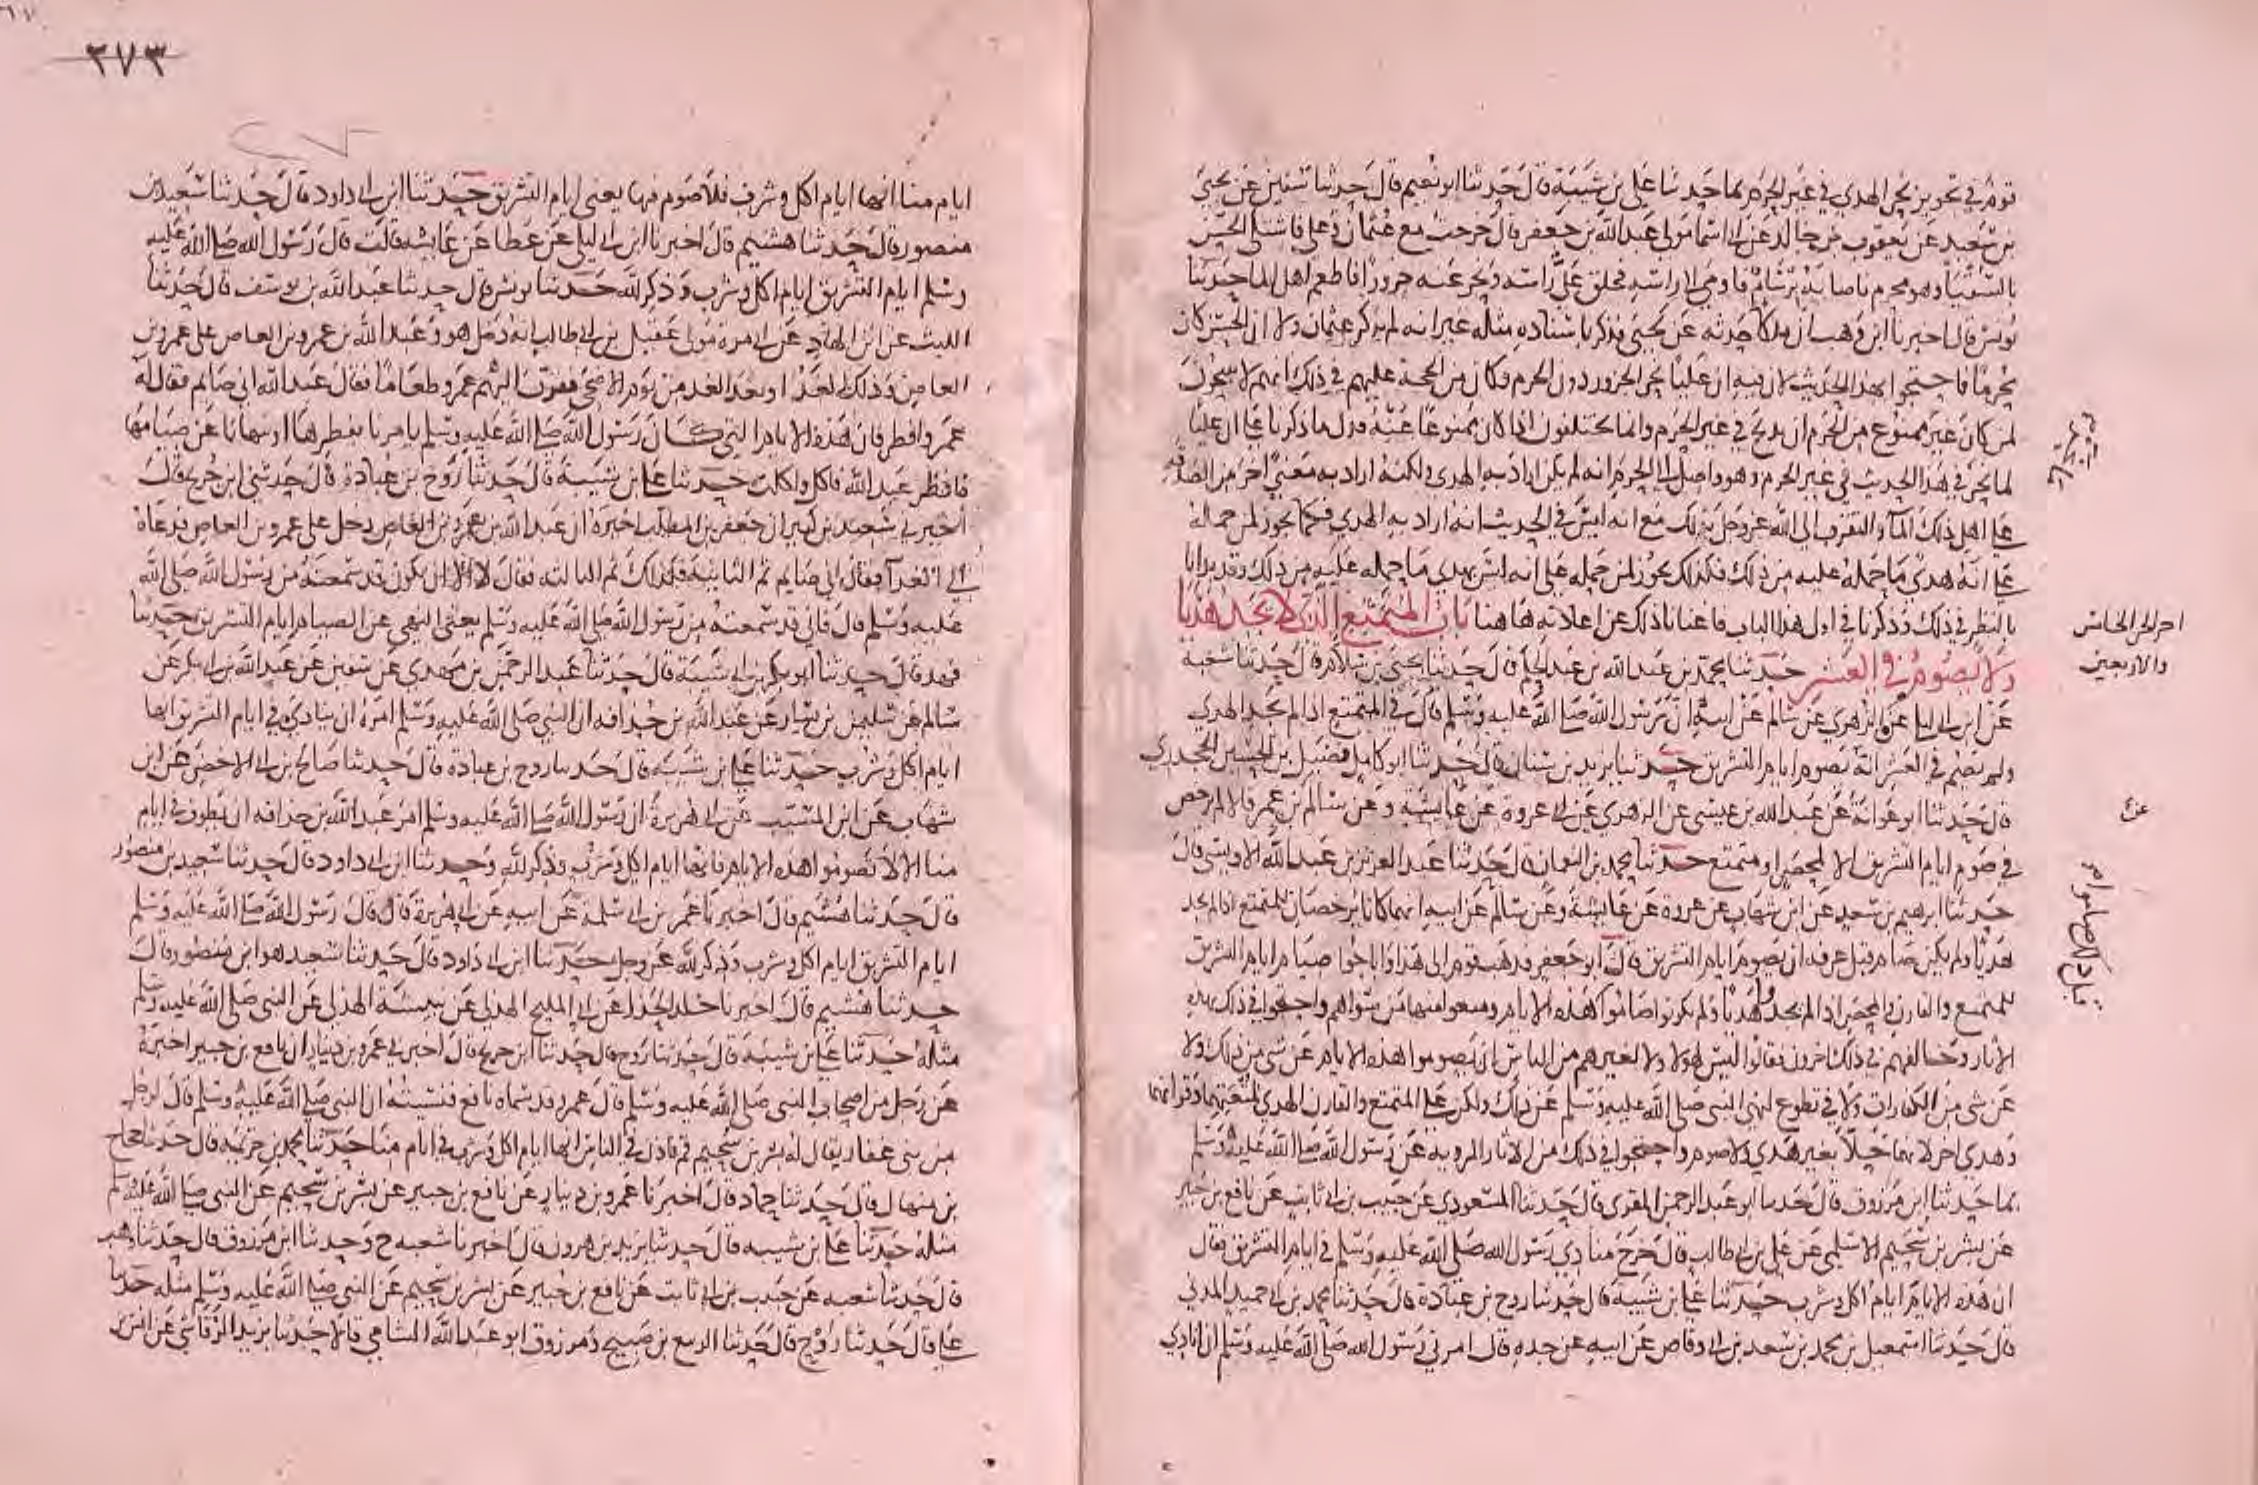 قوم في تجويز نحر الهدي في غير الحرم بما حدثنا علي بن شيبة قال حدثنا ابو نعيم قال حدثنا سفين عن يحيى
بن سعيد عن يعقوب بن خالد عن ابي اسما مولى عبد الله بن جعفر قال خرجت مع عثمان وعلي فاشتكى الحسن
بالسقيا وهو محرم فاصابه برسام فاومى الى راسه فحلق على راسه ونحر عنه جزورا فاطعم اهل الما حدثنا
يونس قال اخبرنا ابن وهب ان ملكا حدثه عن يحيى فذكر باسناده مثله غير انه لم يذكر عثمان ولا ان الحسن كان
محرما فاحتجوا بهذا الحديث لان فيه ان عليا نحر الجزور دون الحرم وكان من الحجة عليهم في ذلك انهم لا يبيحون
لمن كان غير ممنوع من الحرم ان يذبح في غير الحرم وانما يختلفون اذا كان ممنوعا عنه فدل ما ذكرنا على ان عليا
لما نحر في هذا الحديث في غير الحرم وهو واصل الى الحرم انه لم يكن اراد به الهدي ولكنه اراد به معنى اخر من الصدقة
على اهل ذلك الما والتقرب الى الله عز وجل بذلك مع انه ليس في الحديث انه اراد به الهدي فكما يجوز لمن حمله
على انه هدي ما حمله عليه من ذلك فكذلك يجوز لمن حمله على انه ليس بهدي ما حمله عليه من ذلك وقد بدانا
بالنظر في ذلك وذكرنا في اول هذا الباب فاغنانا ذلك عن اعادته هاهنا باب المتمتع الذي لا يجد هديا
ولا يصوم في العشر حدثنا محمد بن عبد الله بن عبد الحكم قال حدثنا يحيى بن سلام قال حدثنا شعبة
عن ابن ابي ليلى عن الزهري عن سالم عن ابيه ان رسول الله صلى الله عليه وسلم قال في المتمتع اذا لم يجد الهدي
ولم يصم في العشر انه يصوم ايام التشريق حدثنا يزيد بن سنان قال حدثنا ابو كامل فضيل بن الحسين الجحدري
قال حدثنا ابو عوانة عن عبد الله بن عيسى عن الزهري عن عروة عن عايشة وعن سالم بن عمر قالا لم يرخص
في صوم ايام التشريق الا لمحصر او متمتع حدثنا محمد بن النعمان قال حدثنا عبد العزيز بن عبد الله الاويسي قال
حدثنا ابرهيم بن سعد عن ابن شهاب عن عروة عن عايشة وعن سالم عن ابيه انهما كانا يرخصان للمتمتع اذا لم يجد
هديا ولم يكن صام قبل عرفة ان يصوم ايام التشريق قال ابو جعفر فذهب قوم الى هذا واباحوا صيام ايام التشريق
للمتمتع والقارن والمحصر اذا لم يجدوا هديا ولم يكونوا صاموا قبل هذه الايام ومنعوا منها من سواهم واحتجوا في ذلك بهذه
الاثار وخالفهم في ذلك اخرون فقالوا ليس لهولا ولا لغيرهم من الناس ان يصوموا هذه الايام عن شي من ذلك ولا
عن شي من الكفارات ولا في تطوع لنهي النبي صلى الله عليه وسلم عن ذلك ولكن على المتمتع والقارن الهدي لمتعتهما وقرانهما
وهدي اخر لانهما حلا بغير هدي ولا صوم واحتجوا في ذلك من الاثار المروية عن رسول الله صلى الله عليه وسلم
بما حدثنا ابن مرزوق قال حدثنا ابو عبد الرحمن المقري قال حدثنا المسعودي عن حبيب بن ابي ثابت عن نافع بن جبير
عن بشر بن سحيم الاسلمي عن علي بن ابي طالب قال خرج منادي رسول الله صلى الله عليه وسلم في ايام التشريق فقال
ان هذه الايام ايام اكل وشرب حدثنا علي بن شيبة قال حدثنا روح بن عبادة قال حدثنا محمد بن ابي حميد المدني
قال حدثنا اسمعيل بن محمد بن سعد بن ابي وقاص عن ابيه عن جده قال امرني رسول الله صلى الله عليه وسلم ان انادي
اخر الجز الخامس
والاربعين
٢٧٣
ايام منا انها ايام اكل وشرب فلا صوم فيها يعني ايام التشريق حدثنا ابن ابي داود قال حدثنا سعيد بن
منصور قال حدثنا هشيم قال اخبرنا ابن ابي ليلى عن عطا عن عايشة قالت قال رسول الله صلى الله عليه
وسلم ايام التشريق ايام اكل وشرب وذكر لله حدثنا يونس قال حدثنا عبد الله بن يوسف قال حدثنا
الليث عن ابن الهاد عن ابي مرة مولى عقيل بن ابي طالب انه دخل هو وعبد الله بن عمرو بن العاص على عمرو بن
العاص وذلك الغد او بعد الغد من يوم الاضحى فقرب اليهم عمرو طعاما فقال عبد الله اني صايم فقال له
عمرو افطر فان هذه الايام التي كان رسول الله صلى الله عليه وسلم يامرنا بفطرها او ينهانا عن صيامها
فافطر عبد الله فاكل واكلت حدثنا علي بن شيبة قال حدثنا روح بن عبادة قال حدثني ابن جريج قال
اخبرني سعيد بن كثير ان جعفر بن المطلب اخبره ان عبد الله بن عمرو بن العاص دخل على عمرو بن العاص فدعاه
الى الغدا فقال اني صايم ثم الثانية فكذلك ثم الثالثة فقال لا الا ان يكون قد سمعته من رسول الله صلى الله
عليه وسلم قال فاني قد سمعته من رسول الله صلى الله عليه وسلم يعني النهي عن الصيام ايام التشريق حدثنا
فهد قال حدثنا ابو بكر بن ابي شيبة قال حدثنا عبد الرحمن بن مهدي عن سفين عن عبد الله بن ابي بكر عن
سالم عن سليمن بن يسار عن عبد الله بن حذافه ان النبي صلى الله عليه وسلم امره ان ينادي في ايام التشريق انها
ايام اكل وشرب حدثنا علي بن شيبة قال حدثنا روح بن عبادة قال حدثنا صالح بن ابي الاخضر عن ابن
شهاب عن ابن المسيب عن ابي هريرة ان رسول الله صلى الله عليه وسلم امر عبد الله بن حذافه ان يطوف في ايام
منا الا لا تصوموا هذه الايام فانها ايام اكل وشرب وذكر لله وحدثنا ابن ابي داود قال حدثنا سعيد بن منصور
قال حدثنا هشيم قال اخبرنا عمر بن ابي سلمة عن ابيه عن ابي هريرة قال قال رسول الله صلى الله عليه وسلم
ايام التشريق ايام اكل وشرب وذكر لله عز وجل حدثنا ابن ابي داود قال حدثنا سعيد هو ابن منصور قال
حدثنا هشيم قال اخبرنا خلد الحذا عن ابي المليح الهذلي عن نبيشة الهذلي عن النبي صلى الله عليه وسلم
مثله حدثنا علي بن شيبة قال حدثنا روح قال حدثنا ابن جريج قال اخبرني عمرو بن دينار ان نافع بن جبير اخبره
عن رجل من اصحاب النبي صلى الله عليه وسلم قال عمرو قد سماه نافع فنسيته ان النبي صلى الله عليه وسلم قال لرجل
من بني غفار يقال له بشر بن سحيم قم فاذن في الناس انها ايام اكل وشرب في ايام منا حدثنا محمد بن خزيمه قال حدثنا حجاج
بن منهال قال حدثنا حماد قال اخبرنا عمرو بن دينار عن نافع بن جبير عن بشر بن سحيم عن النبي صلى الله عليه وسلم
مثله حدثنا علي بن شيبه قال حدثنا يزيد بن هرون قال اخبرنا شعبه ح وحدثنا ابن مرزوق قال حدثنا وهب
قال حدثنا شعبه عن حبيب بن ابي ثابت عن نافع بن جبير عن بشر بن سحيم عن النبي صلى الله عليه وسلم مثله حدثنا
علي قال حدثنا روح قال حدثنا الربيع بن صبيح ومرزوق ابو عبد الله الشامي قالا حدثنا يزيد الرقاشي عن انس